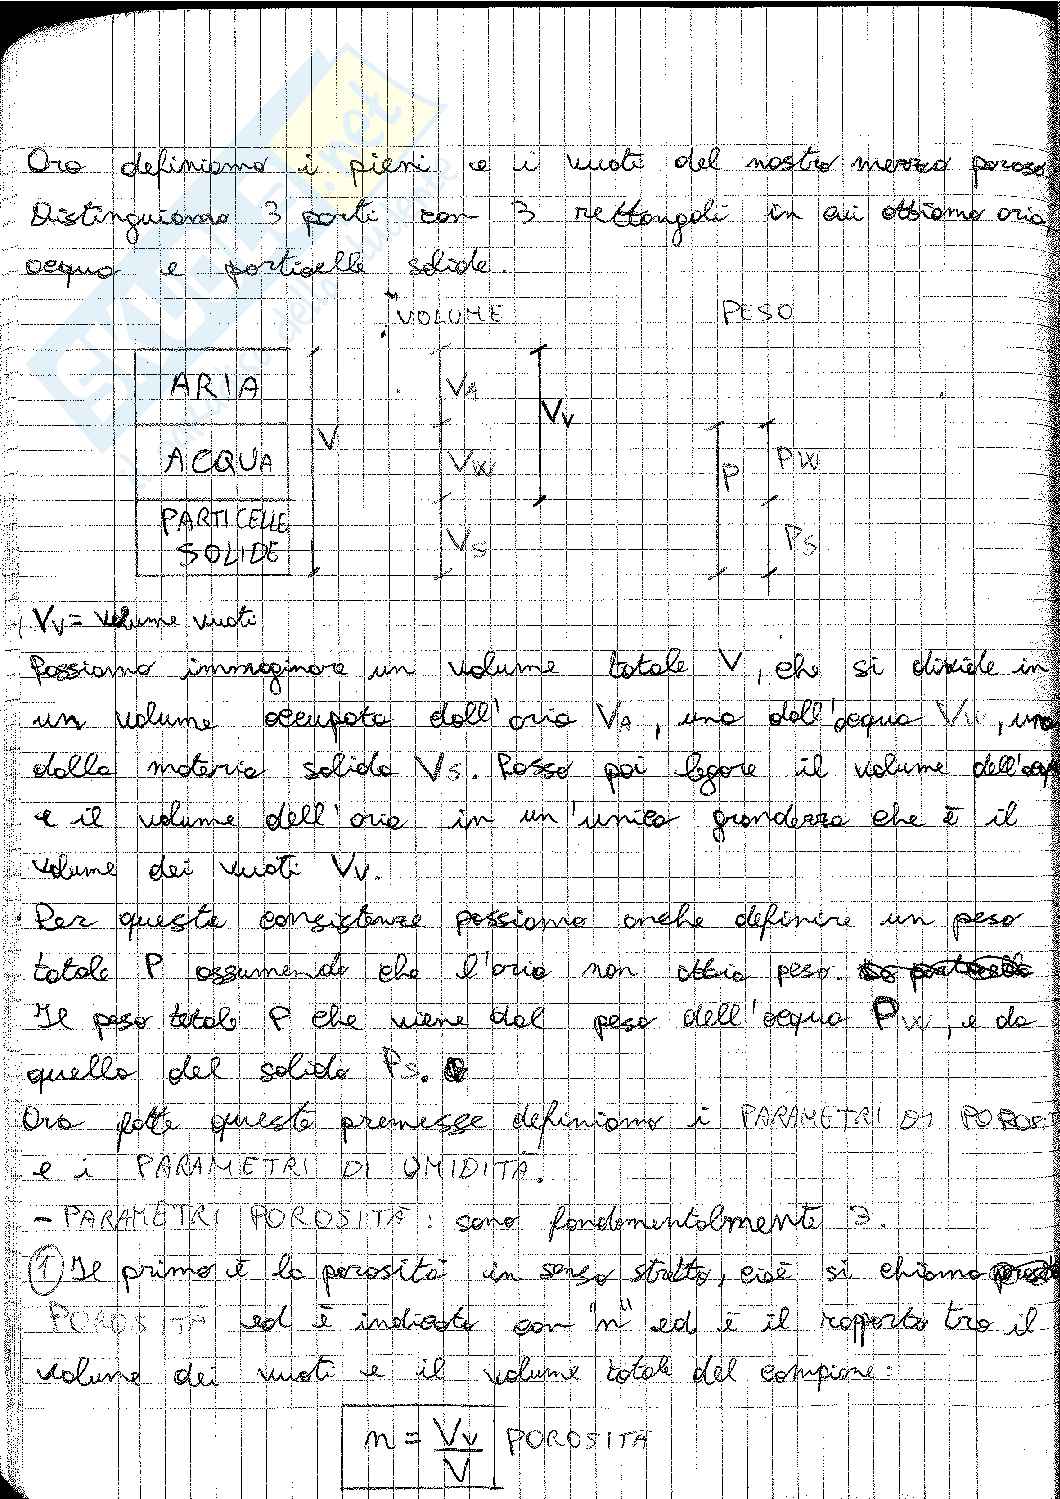 Ora definiamo i pieni e i vuoti del nostro mezzo poroso
Distinguiamo 3 parti con 3 rettangoli in cui abbiamo aria,
acqua e particelle solide.
VOLUME PESO
ARIA VA
V VV
ACQUA VW P PW
PARTICELLE
SOLIDE VS PS
VV = volume vuoti
Possiamo immaginare un volume totale V, che si divide in
un volume occupato dall'aria VA, uno dall'acqua VW, uno
dalla materia solida VS. Posso poi legare il volume dell'acqua
e il volume dell'aria in un'unica grandezza che è il
volume dei vuoti VV.
Per queste consistenze possiamo anche definire un peso
totale P assumendo che l'aria non abbia peso.
Il peso totale P che viene dal peso dell'acqua PW, e da
quello del solido PS.
Ora fatte queste premesse definiamo i PARAMETRI DI
e i PARAMETRI DI UMIDITÀ.
- PARAMETRI POROSITÀ: sono fondamentalmente 3.
① Il primo è la porosità in senso stretto, cioè si chiama
POROSITÀ ed è indicata con "n" ed è il rapporto tra il
volume dei vuoti e il volume totale del campione:
n = VV / V POROSITÀ